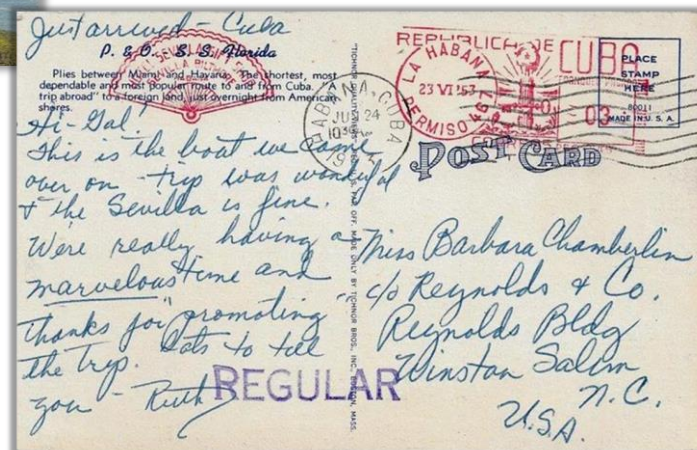 Just arrived - Cuba
P. & O. S. S. Florida
Plies between Miami and Havana. The shortest, most
dependable and most popular route to and from Cuba. "A
trip abroad" to a foreign land, just overnight from American
shores.
Hi-Gal!
This is the boat we came
over on - trip was wonderful
& the Sevilla is fine.
We're really having a
marvelous time and
thanks for "promoting"
the trip. Lots to tell
you - Ruth
REGULAR
REPUBLICA DE CUBA
LA HABANA
23 VI '53
PERMISO 467
03
HABANA, CUBA
JUN 24
PLACE
STAMP
HERE
80011
MADE IN U. S. A.
POST CARD
Miss Barbara Chamberlin
c/o Reynolds & Co.
Reynolds Bldg
Winston Salem
N.C.
U.S.A.